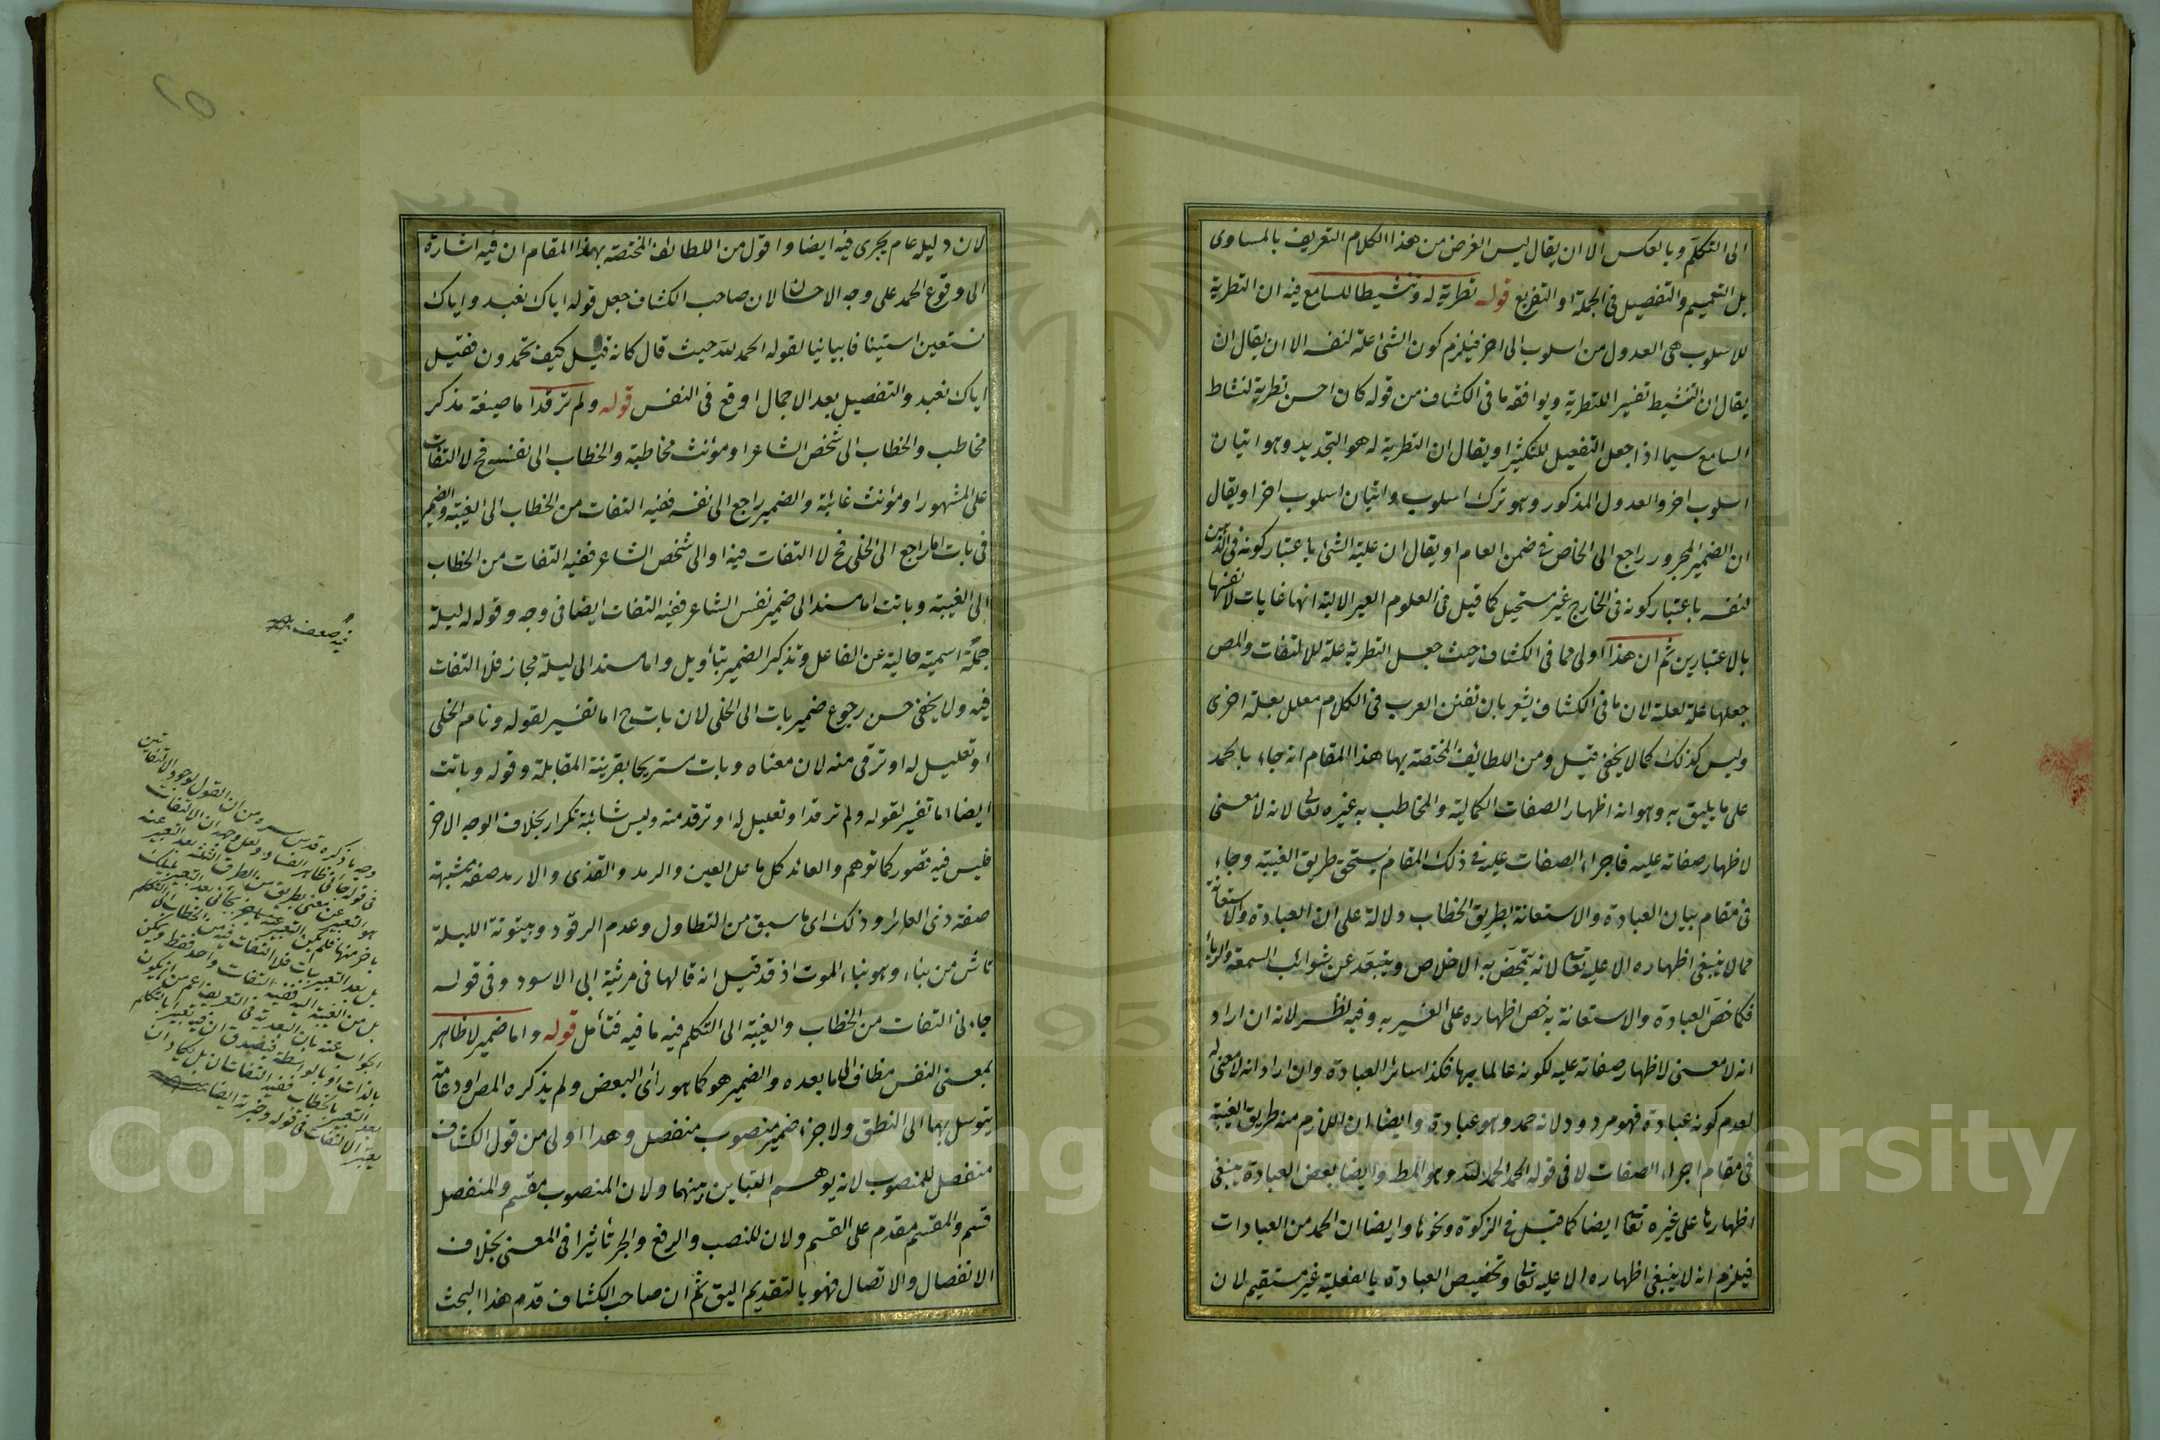 الى التكلم وبالعكس الا ان يقال ليس الغرض من هذا الكلام التعريف بالمساوى
بل التعميم والتفصيل فى الجملة او التفريع قوله تطرية له وتنشيطا للسامع فيه ان التطرية
للاسلوب هى العدول من اسلوب الى اخر فيلزم كون الشئ علة لنفسه الا ان يقال ان
يقال ان التنشيط تفسير للتطرية ويوافقه ما فى الكشاف من قوله كان احسن تطرية لنشاط
السامع سيما اذا جعل التفعيل للتكثير او يقال ان التطرية له هو التجديد وهو اتيان
اسلوب اخر والعدول المذكور وهو ترك اسلوب واتيان اسلوب اخر او يقال
ان الضمير المجرور راجع الى الخاص فى ضمن العام او يقال ان علية الشئ باعتبار كونه فى الذهن
لنفسه باعتبار كونه فى الخارج غير مستحيل كما قيل فى العلوم الغير الالية انها غايات لانفسها
بالاعتبارين ثم ان هذا اولى مما فى الكشاف حيث جعل التطرية علة للالتفات والمص
جعلها علة لعلة لان ما فى الكشاف يشعر بان تفنن العرب فى الكلام معلل بعلة اخرى
وليس كذلك كما لا يخفى قيل ومن اللطائف المختصة بها هذا المقام انه جاء بالحمد
على ما يليق به وهو انه اظهار الصفات الكمالية والمخاطب به غيره تعالى لانه لا معنى
لاظهار صفاته عليه فاجراء الصفات عليه فى ذلك المقام يستحق طريق الغيبة وجاء
فى مقام بيان العبادة والاستعانة بطريق الخطاب دلالة على ان العبادة والاستعانة
مما لا ينبغى اظهاره الا عليه تعالى لانه يتمحض به الاخلاص ويتبعد عن شوائب السمعة والرياء
فكما خص العبادة والاستعانة به خص اظهاره على الغير به وفيه نظر لانه ان اراد
انه لا معنى لاظهار صفاته عليه لكونه عالما بها فكذا سائر العبادة وان اراد انه لا معنى له
لعدم كونه عبادة فهو مردود لانه حمد وهو عبادة وايضا ان اللازم منه طريق الغيبة
فى مقام اجراء الصفات لا فى قوله الحمد الحمد لله وهو المط وايضا بعض العبادة ينبغى
اظهارها على غيره تعالى ايضا كما قيل فى الزكوة ونحوها وايضا ان الحمد من العبادات
فيلزم انه لا ينبغى اظهاره الا عليه تعالى وتخصيص العبادة بالفعلية غير مستقيم لان
لان دليله عام يجرى فيه ايضا واقول من اللطائف المختصة بهذا المقام ان فيه اشارة
الى وقوع الحمد على وجه الاحسان لان صاحب الكشاف جعل قوله اياك نعبد واياك
نستعين استينافا بيانيا لقوله الحمد لله حيث قال كانه قيل كيف تحمدون فقيل
اياك نعبد والتفصيل بعد الاجمال اوقع فى النفس قوله ولم ترقد اما صيغة مذكر
مخاطب والخطاب الى شخص الشاعر او مونث مخاطبة والخطاب الى نفسه فح لا التفات
على المشهور او مؤنث غائبة والضمير راجع الى نفسه ففيه التفات من الخطاب الى الغيبة والضمير
فى بات اما راجع الى الخلى فح لا التفات فيه او الى شخص الشاعر ففيه التفات من الخطاب
الى الغيبة وباتت اما مسند الى ضمير نفس الشاعر ففيه التفات ايضا فى وجه وقوله له ليلة
جملة اسمية حالية عن الفاعل وتذكير الضمير بتأويل واما مسند الى ليلة مجاز فلا التفات
فيه ولا يخفى حسن رجوع ضمير بات الى الخلى لان بات ح اما تفسير لقوله ونام الخلى
او تعليل له او ترقى منه لان معناه وبات مستريحا بقرينة المقابلة وقوله وباتت
ايضا اما تفسير لقوله ولم ترقد او تعليل له او ترقد منه وليس شائبة تكرار بخلاف الوجه الاخر
فليس فيه قصور كما توهم والعائد كل ما عل العين والرمد والقذى والارمد صفة مشبهة
صفة ذى العائر وذلك اى ما سبق من التطاول وعدم الرقود وبيتوتة الليلة
ناش من بناء وهو بناء الموت اذ قد قيل انه قالها فى مرثية ابى الاسود وفى قوله
جاءنى التفات من الخطاب والغيبة الى التكلم فيه ما فيه فتأمل قوله واما ضمير لا ظاهر
بمعنى النفس مظاف الى ما بعده والضمير هو كما هو رأى البعض ولم يذكره المص او دعامة
يتوسل بها الى النطق ولا جزء ضمير منصوب منفصل وهذا اولى من قول الكشاف
منفصل للمنصوب لانه يوهم التباين بينهما ولان المنصوب مقسم والمنفصل
قسيم والمقسم مقدم على القسم ولان للنصب والرفع والجر تأثيرا فى المعنى بخلاف
الانفصال والاتصال فهو بالتقديم اليق ثم ان صاحب الكشاف قدم هذا البحث
فيه ضعف
Copyright © King Saud University